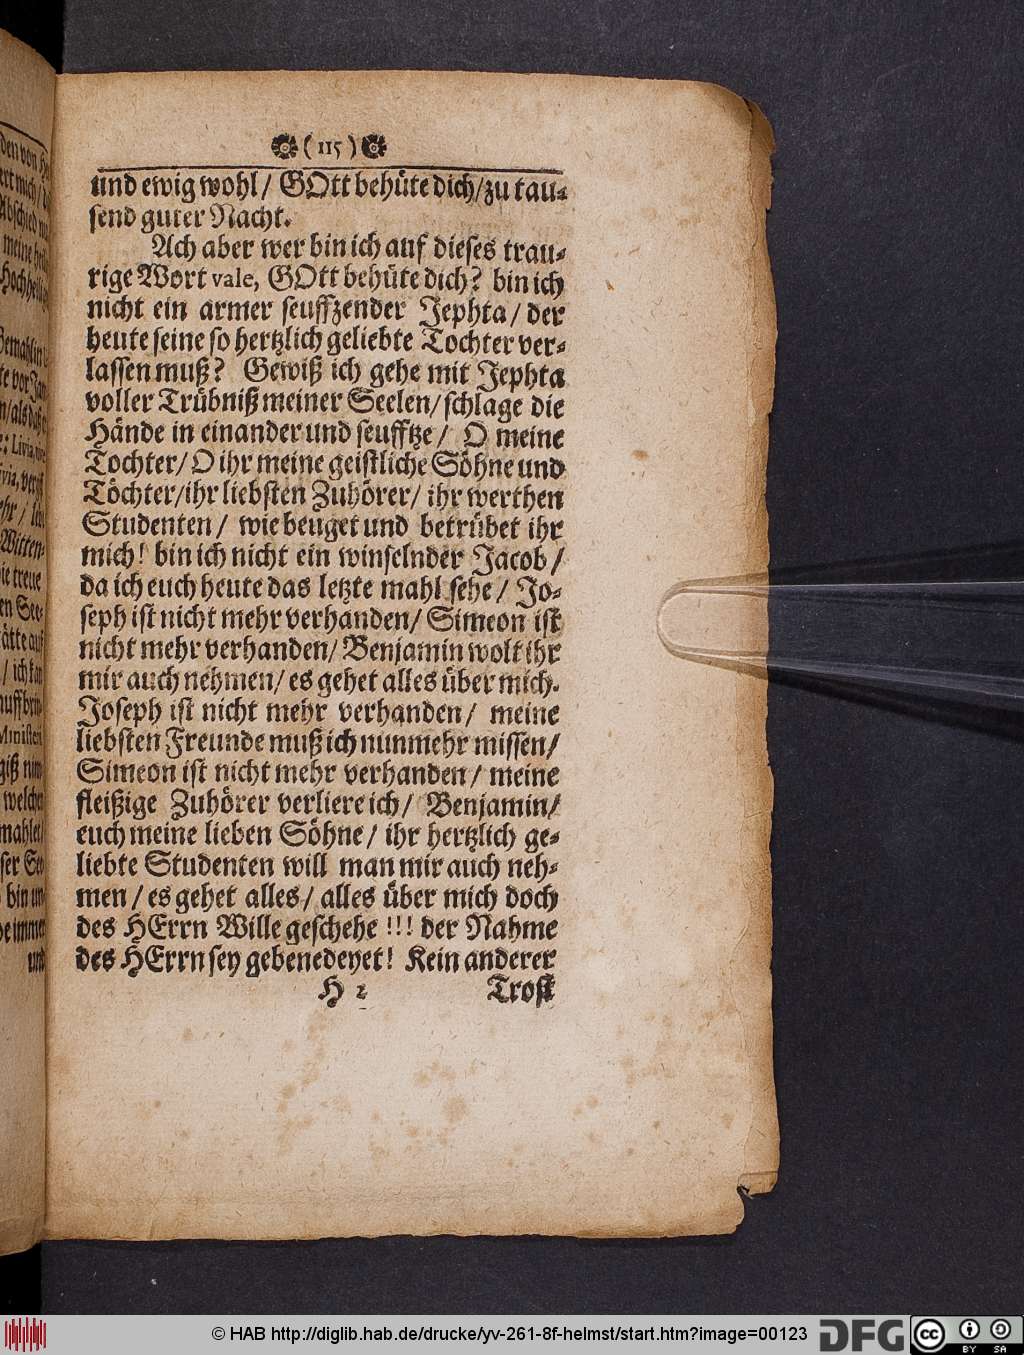 ( 115 )
und ewig wohl / GOtt behüte dich / zu tau-
send guter Nacht.
Ach aber wer bin ich auf dieses trau-
rige Wort vale, GOtt behüte dich? bin ich
nicht ein armer seuffzender Jephta / der
heute seine so hertzlich geliebte Tochter ver-
lassen muß? Gewiß ich gehe mit Jephta
voller Trübniß meiner Seelen / schlage die
Hände in einander und seufftze / O meine
Tochter / O ihr meine geistliche Söhne und
Töchter / ihr liebsten Zuhörer / ihr werthen
Studenten / wie beuget und betrübet ihr
mich! bin ich nicht ein winselnder Jacob /
da ich euch heute das letzte mahl sehe / Jo-
seph ist nicht mehr verhanden / Simeon ist
nicht mehr verhanden / Benjamin wolt ihr
mir auch nehmen / es gehet alles über mich.
Joseph ist nicht mehr verhanden / meine
liebsten Freunde muß ich nunmehr missen /
Simeon ist nicht mehr verhanden / meine
fleißige Zuhörer verliere ich / Benjamin /
euch meine lieben Söhne / ihr hertzlich ge-
liebte Studenten will man mir auch neh-
men / es gehet alles / alles über mich doch
des HErrn Wille geschehe !!! der Nahme
des HErrn sey gebenedeyet! Kein anderer
H 2 Trost
© HAB http://diglib.hab.de/drucke/yv-261-8f-helmst/start.htm?image=00123
DFG
cc BY SA